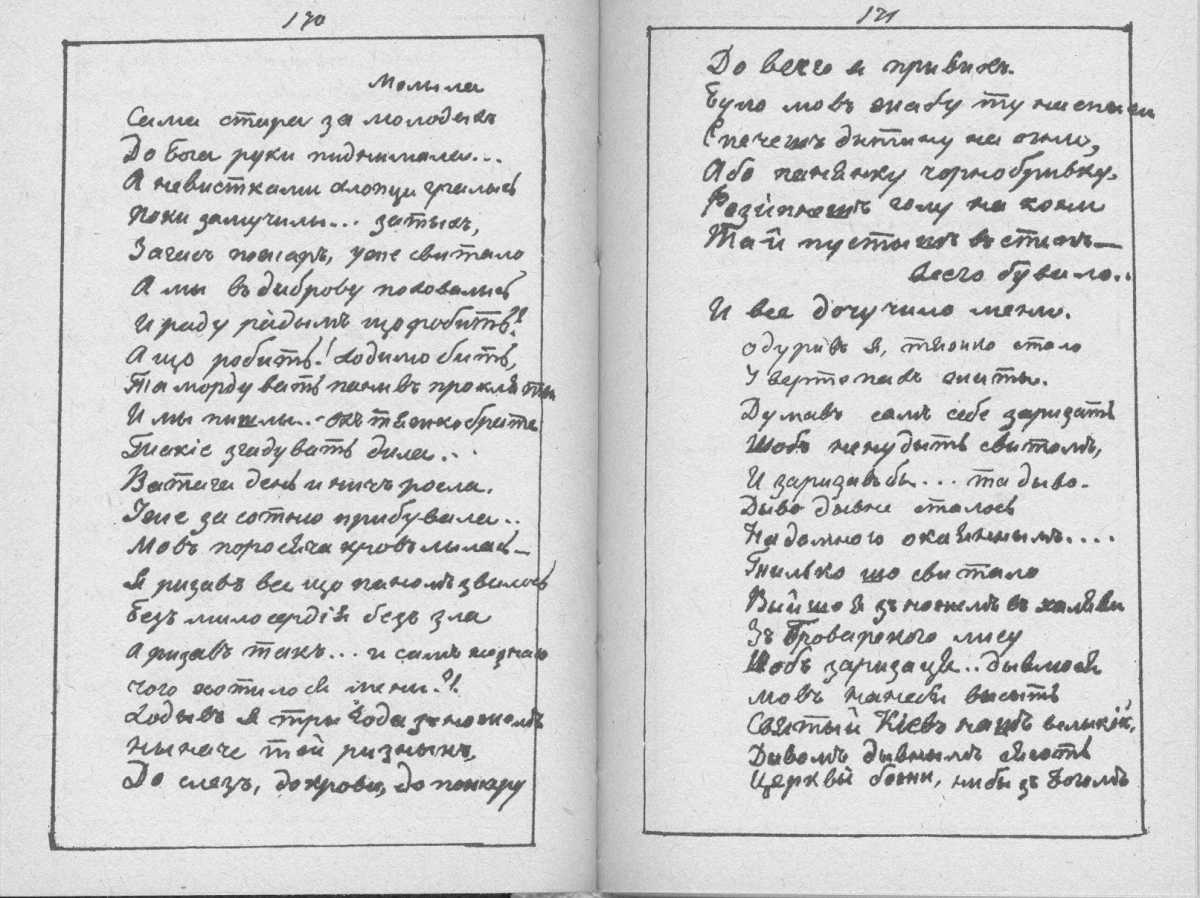 170
Молила
Сама стара за молодыхъ
До Бога руки пиднимала...
А невистками хлопци гралысь
Поки замучилы... затыхъ,
Загасъ пожаръ, уже свитало
А мы въ диброву поховалысь
И раду радымъ що робить?!
А що робить! ходимо бить,
Та мордувать панивъ проклятыхъ
И мы пишлы... охъ тяжко брате
Такіе згадувать дила...
Ватага день и ничъ росла.
Уже за сотню прибувала..
Мовъ поросяча кровъ лылась—
Я ризавъ все що паномъ звалось
Безъ милосердія безъ зла
А ризавъ такъ... и самъ не знаю
Чого хотилося мени.?!
Ходывъ я три года зъ ножомъ
Ныначе той ризныкъ,
До слезъ, до крови, до пожару
171
До всего я привикъ.
Було мовъ жабу ту на списи
Спечешъ дитину на огни,
Або панянку чорнобривку
Розипнешъ голу на кони
Тай пустышъ въ степъ—
всего бувало..
И все дочучило мени.
Одуривъ я, тяжко стало
У вертепахъ жыты.
Думавъ самъ себе заризать
Щобъ не нудыть свитомъ,
И заризавъ бы... та дыво-
Дыво дывне сталось
Надомною окаяннымъ....
Тилько що свитало
Выйшо я зъ ножемъ въ халяви
Зъ Броварского лису
Щобъ заризаця.. дывлюся
Мовъ на неби высыть
Святый Кіевъ нашъ великій,
Дывомъ дывнымъ сяють
Церквы божи, ниби зъ Богомъ